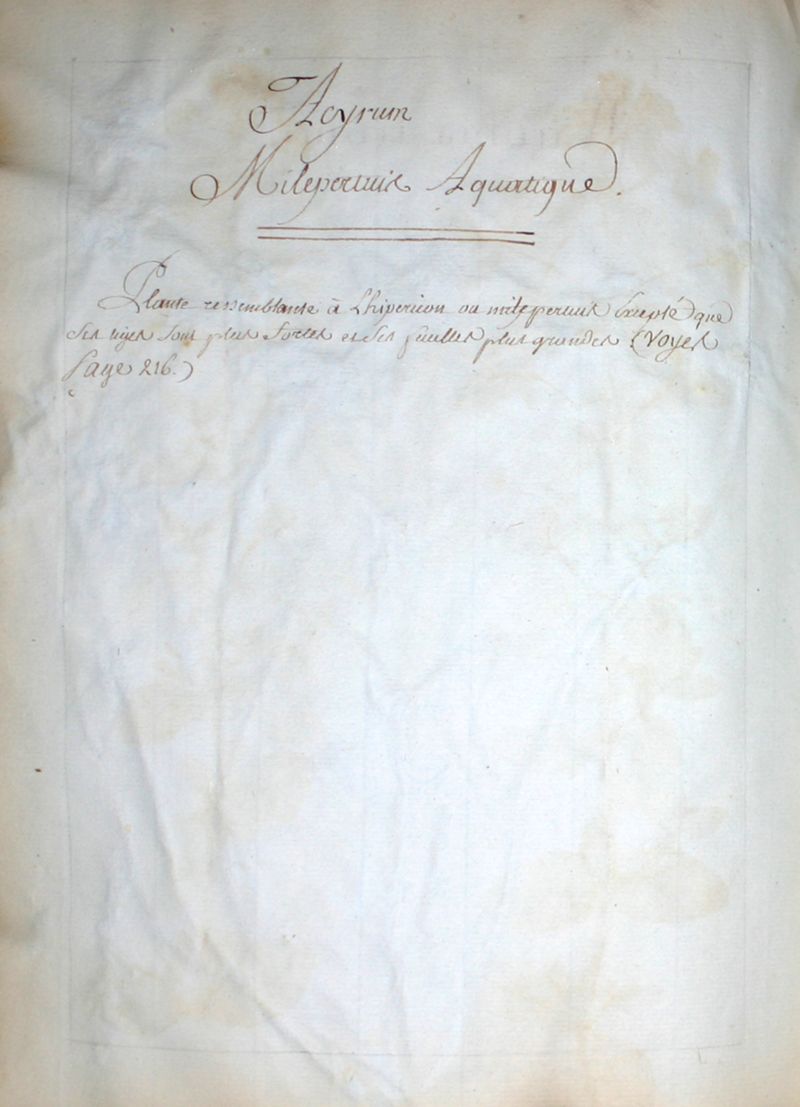 Acyrum
Milepertuis Aquatique.
Plante ressemblante à Lhipericon ou milepertuis Exepté que
ses tiges sont plus fortes et ses feuilles plus grandes (Voyes
page 216.)